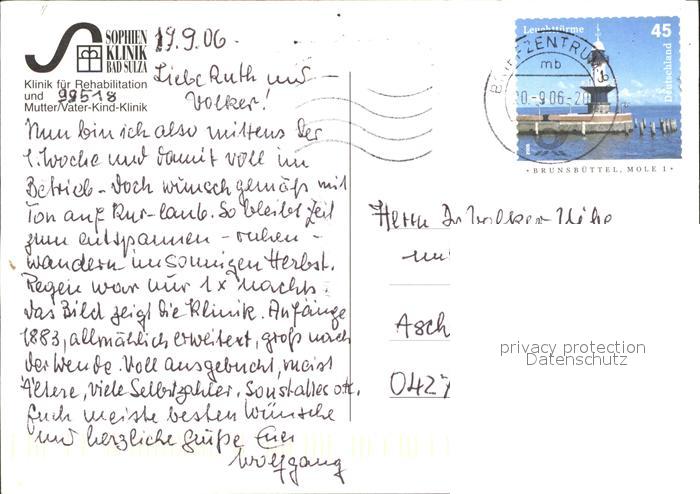 SOPHIEN
KLINIK
BAD SULZA
Klinik für Rehabilitation
und 99518
Mutter/Vater-Kind-Klinik
19.9.06.
Liebe Ruth und
Volker!
Nun bin ich also mittens der
1. Woche und damit voll im
Betrieb - doch wunschgemäß mit
Ton auf Kur-laub. So bleibt Zeit
zum entspannen - ruhen -
wandern im sonnigen Herbst.
Regen war nur 1x nachts.
Das Bild zeigt die Klinik. Anfänge
1883, allmählich erweitert, groß nach
der Wende. Voll ausgebucht, meist
Ältere, viele Selbstzahler. Sonst alles ok.
Euch meiste besten Wünsche
und herzliche Grüße Euer
Wolfgang
Leuchttürme
45
Deutschland
BRIEFZENTRUM
mb
20.-9.06-20
BRUNSBÜTTEL, MOLE 1
Herrn Dr Volker
Asch
042
privacy protection
Datenschutz